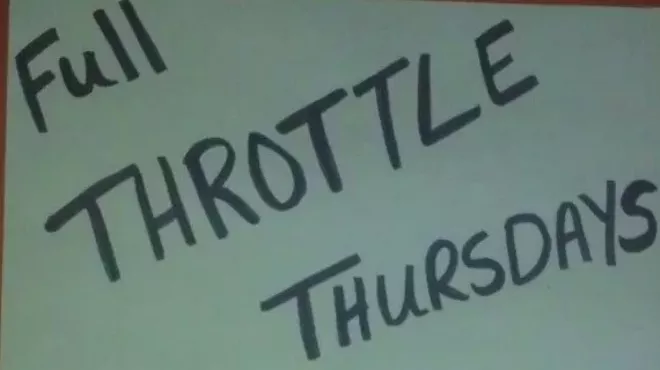 Full
THROTTLE
THURSDAYS